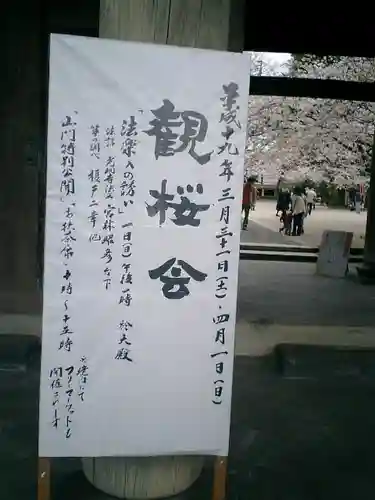 平成十九年三月三十一日(土)・四月一日(日)
観桜会
「法楽への誘い」一日(日)午後一時 於大殿
法話 光明寺法主 宮林昭彦台下
箏の調べ 榎戸二幸他
「山門特別公開」「お抹茶席」十時〜十五時
境内にて
フリーマーケットも
開催されます